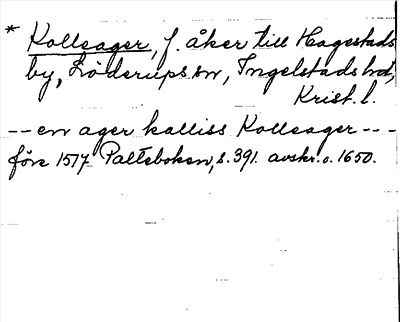 * Kollsager, f. åker till Hagestads
by, Löderups sn, Ingelstads hd,
Krist. l.
-- en ager kalliss Kollsager ----
före 1517 Palteboken, s. 391. avskr. o. 1650.